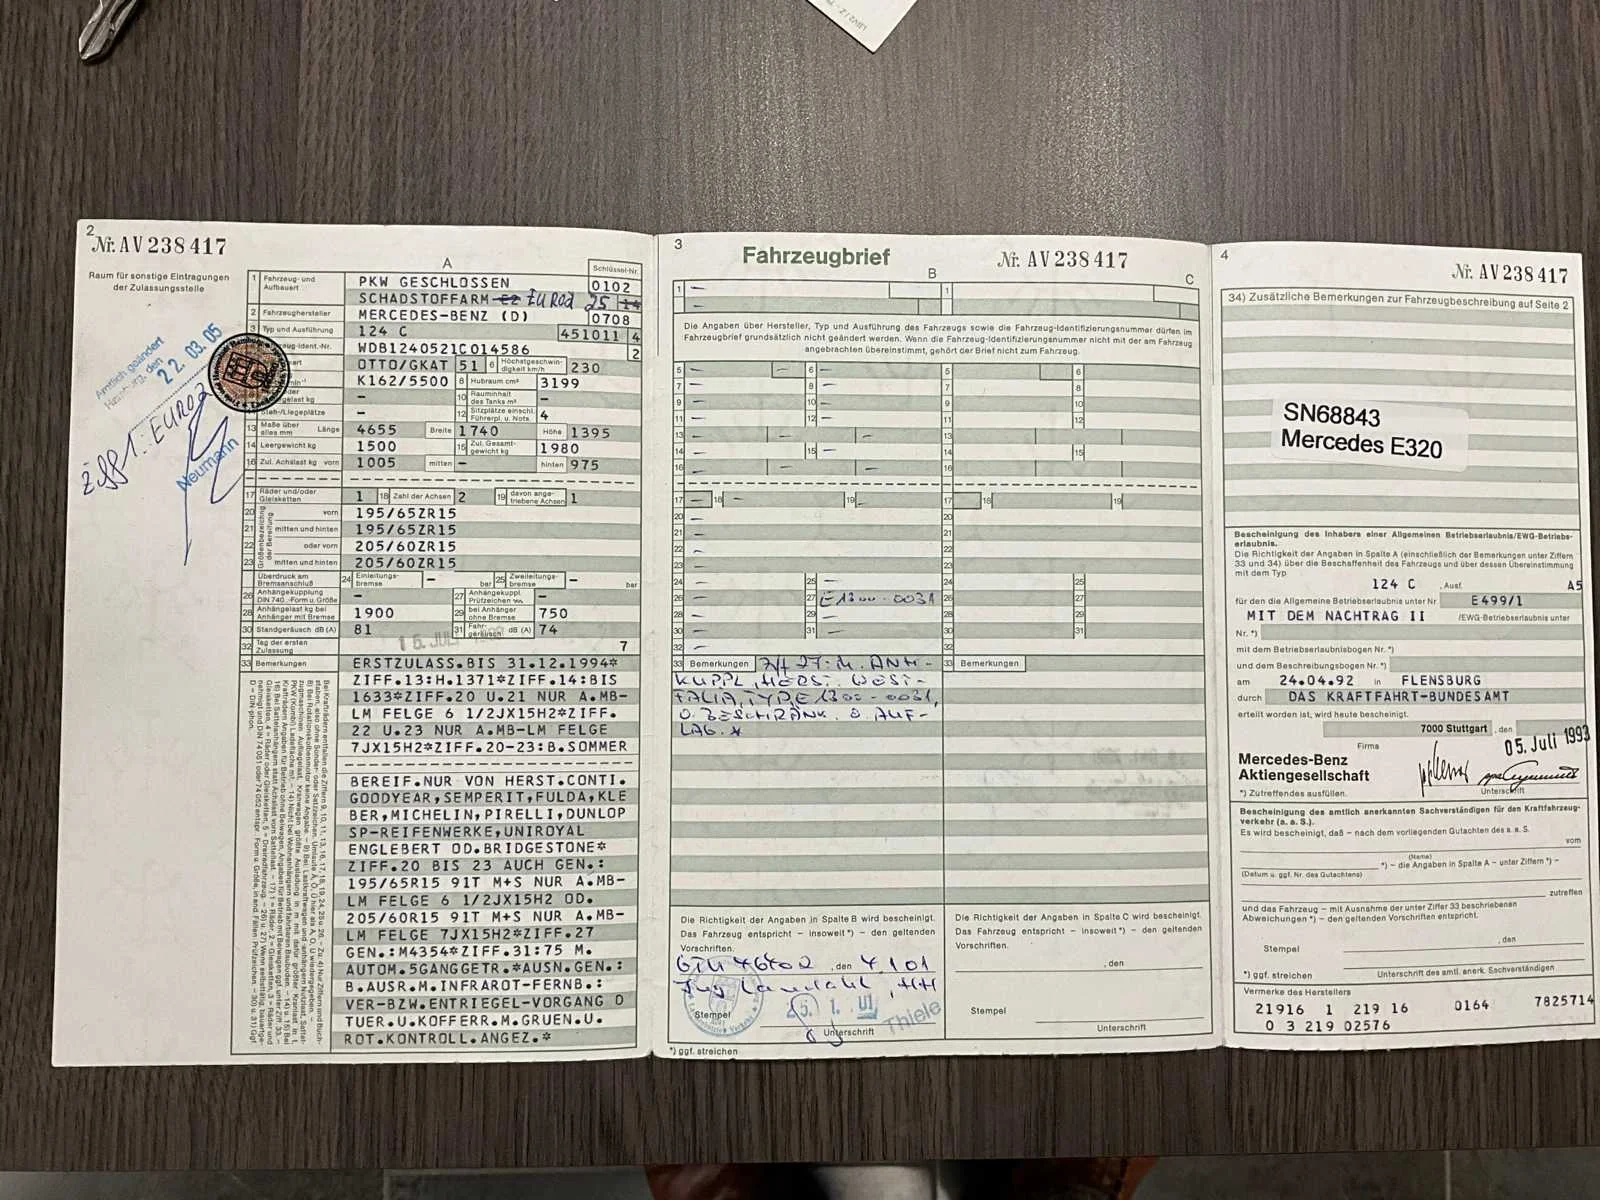 2
Nr. AV 238417
Raum für sonstige Eintragungen
der Zulassungsstelle
Amtlich geändert
Hamburg, den
22. 03. 05
Ziff 1: EURO2
Neumann
A
Schlüssel-Nr.
1 Fahrzeug- und Aufbauart PKW GESCHLOSSEN 0102
SCHADSTOFFARM E2 EURO2 25 14
2 Fahrzeughersteller MERCEDES-BENZ (D) 0708
3 Typ und Ausführung 124 C 451011 4
WDB1240521C014586 2
OTTO/GKAT 51 6 Höchstgeschwindigkeit km/h 230
K162/5500 8 Hubraum cm³ 3199
– 10 Rauminhalt des Tanks m³ –
Steh-/Liegeplätze – 12 Sitzplätze einschl. Führerpl. u. Nots. 4
13 Maße über alles mm Länge 4655 Breite 1740 Höhe 1395
14 Leergewicht kg 1500 15 Zul. Gesamtgewicht kg 1980
16 Zul. Achslast kg vorn 1005 mitten – hinten 975
17 Räder und/oder Gleisketten 1 18 Zahl der Achsen 2 19 davon angetriebene Achsen 1
20 vorn 195/65ZR15
21 mitten und hinten 195/65ZR15
22 oder vorn 205/60ZR15
23 mitten und hinten 205/60ZR15
Überdruck am Bremsanschluß 24 Einleitungsbremse – bar 25 Zweileitungsbremse – bar
26 Anhängekupplung DIN 740.. Form u. Größe – 27 Anhängekuppl. Prüfzeichen –
28 Anhängelast kg bei Anhänger mit Bremse 1900 29 bei Anhänger ohne Bremse 750
30 Standgeräusch dB (A) 81 31 Fahrgeräusch dB (A) 74
32 Tag der ersten Zulassung 7
33 Bemerkungen ERSTZULASS.BIS 31.12.1994*
ZIFF.13:H.1371*ZIFF.14:BIS
1633*ZIFF.20 U.21 NUR A.MB-
LM FELGE 6 1/2JX15H2*ZIFF.
22 U.23 NUR A.MB-LM FELGE
7JX15H2*ZIFF.20-23:B.SOMMER
BEREIF.NUR VON HERST.CONTI.
GOODYEAR,SEMPERIT,FULDA,KLE
BER,MICHELIN,PIRELLI,DUNLOP
SP-REIFENWERKE,UNIROYAL
ENGLEBERT OD.BRIDGESTONE*
ZIFF.20 BIS 23 AUCH GEN.:
195/65R15 91T M+S NUR A.MB-
LM FELGE 6 1/2JX15H2 OD.
205/60R15 91T M+S NUR A.MB-
LM FELGE 7JX15H2*ZIFF.27
GEN.:M4354*ZIFF.31:75 M.
AUTOM.5GANGGETR.*AUSN.GEN.:
B.AUSR.M.INFRAROT-FERNB.:
VER-BZW.ENTRIEGEL-VORGANG D
TUER.U.KOFFERR.M.GRUEN.U.
ROT.KONTROLL.ANGEZ.*
3
Fahrzeugbrief
Nr. AV 238417
B
C
1 – 1
Die Angaben über Hersteller, Typ und Ausführung des Fahrzeugs sowie die Fahrzeug-Identifizierungsnummer dürfen im
Fahrzeugbrief grundsätzlich nicht geändert werden. Wenn die Fahrzeug-Identifizierungsnummer nicht mit der am Fahrzeug
angebrachten übereinstimmt, gehört der Brief nicht zum Fahrzeug.
5 – – 6 – 5 6
7 – 8 – 7 8
9 – 10 – 9 10
11 – 12 – 11 12
13 – – – 13
14 – 15 – 14 15
16 – – – 16
17 – 18 – 19 – 17 18 19
20 – 20
21 – 21
22 – 22
23 – 23
24 – 25 – 24 25
26 – 27 E1300-0031 26 27
28 – 29 – 28 29
30 – 31 – 30 31
32 – 32
33 Bemerkungen Zif 27: M. ANH- 33 Bemerkungen
KUPPL, HERST. WEST-
FALIA, TYPE 1300-0031,
O. BESCHRÄNK. O. AUF-
LAG.*
Die Richtigkeit der Angaben in Spalte B wird bescheinigt.
Das Fahrzeug entspricht – insoweit*) – den geltenden
Vorschriften.
GTÜ 46402, den 4.1.01
Stempel
25. 1. 01
Thiele
Unterschrift
*) ggf. streichen
Die Richtigkeit der Angaben in Spalte C wird bescheinigt.
Das Fahrzeug entspricht – insoweit*) – den geltenden
Vorschriften.
, den
Stempel
Unterschrift
4
Nr. AV 238417
34) Zusätzliche Bemerkungen zur Fahrzeugbeschreibung auf Seite 2
SN68843
Mercedes E320
Bescheinigung des Inhabers einer Allgemeinen Betriebserlaubnis/EWG-Betriebs-
erlaubnis.
Die Richtigkeit der Angaben in Spalte A (einschließlich der Bemerkungen unter Ziffern
33 und 34) über die Beschaffenheit des Fahrzeugs und über dessen Übereinstimmung
mit dem Typ
124 C , Ausf. A5
für den die Allgemeine Betriebserlaubnis unter Nr E499/1
MIT DEM NACHTRAG II /EWG-Betriebserlaubnis unter
Nr. *)
mit dem Betriebserlaubnisbogen Nr. *)
und dem Beschreibungsbogen Nr. *)
am 24.04.92 in FLENSBURG
durch DAS KRAFTFAHRT-BUNDESAMT
erteilt worden ist, wird heute bescheinigt.
7000 Stuttgart , den
05. Juli 1993
Firma
Mercedes-Benz
Aktiengesellschaft
*) Zutreffendes ausfüllen. Unterschrift
Bescheinigung des amtlich anerkannten Sachverständigen für den Kraftfahrzeug-
verkehr (a. a. S.).
Es wird bescheinigt, daß – nach dem vorliegenden Gutachten des a. a. S.
vom
(Name)
*) – die Angaben in Spalte A – unter Ziffern *) –
(Datum u. ggf. Nr. des Gutachtens)
zutreffen
und das Fahrzeug – mit Ausnahme der unter Ziffer 33 beschriebenen
Abweichungen *) – den geltenden Vorschriften entspricht.
, den
Stempel
*) ggf. streichen Unterschrift des amtl. anerk. Sachverständigen
Vermerke des Herstellers
21916 1 219 16 0164 7825714
0 3 219 02576